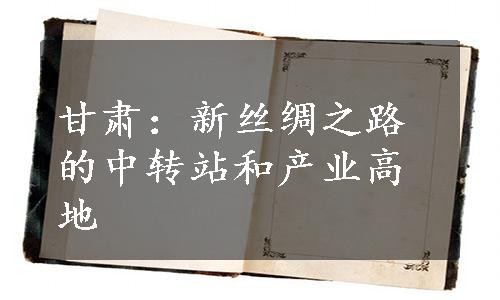 甘肃：新丝绸之路
的中转站和产业高
地